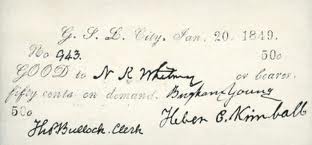 G. S. L. City, Jan. 20. 1849.
No 943. 50c
GOOD to N K Whitney or bearer
fifty cents on demand. Brigham Young
50c Heber C. Kimball
Thos Bullock. Clerk